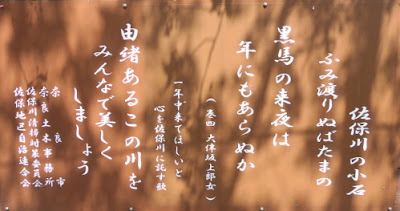 佐保川の小石
ふみ渡りぬばたまの
黒馬の来夜は
年にもあらぬか
(巻四 大伴坂上郎女)
一年中来てほしいと
心を佐保川に託す歌
由緒あるこの川を
みんなで美しく
しましょう
奈良市
奈良土木事務所
佐保川清掃対策委員会
佐保地区自治連合会